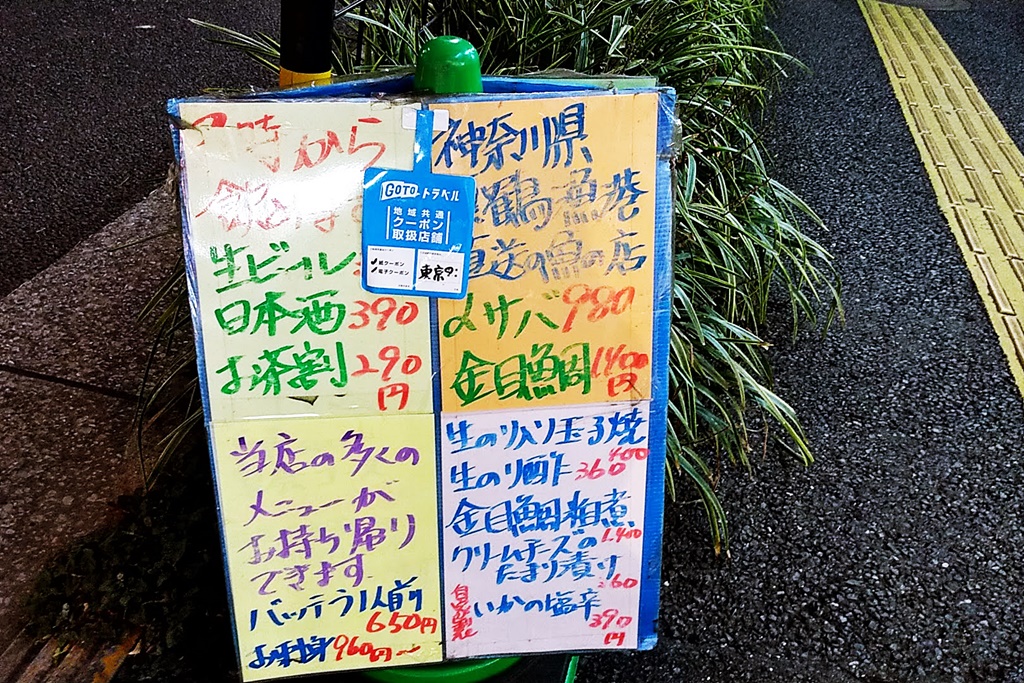 時から
生ビール
日本酒390
お茶割290
円
GOTOトラベル
地域共通
クーポン
取扱店舗
紙クーポン
電子クーポン
東京
神奈川県
鶴魚港
直送の魚の店
〆サバ980
金目鯛1400
円
当店の多くの
メニューが
お持ち帰り
できます
バッテラ1人前
650円
お刺身960円〜
生のり入り玉子焼
400
生のり酢360
金目鯛粕煮
1.400
クリームチーズの
たまり漬り
360
自家製
いかの塩辛
390
円